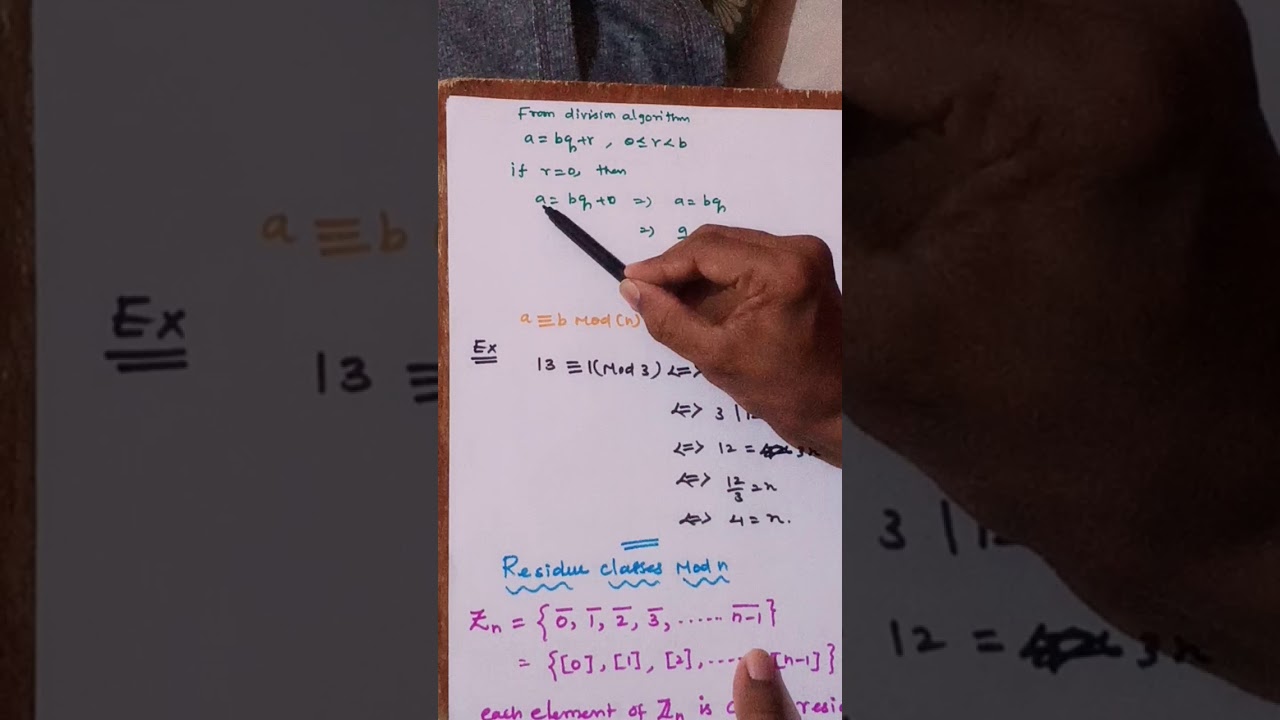 From division algorithm
a = bq+r , 0≤r<b
if r=0, then
a= bq+0 => a= bq
=> a
a≡b Mod(n)
Ex
13 ≡1(Mod 3) <=>
<=> 3 | 12
<=> 12 = 3n
<=> 12/3 = n
<=> 4 = n.
Residue classes Mod n
ℤn = {0̅, 1̅, 2̅, 3̅, ...... n-1̅}
= {[0], [1], [2], ..... [n-1]}
each element of ℤn is